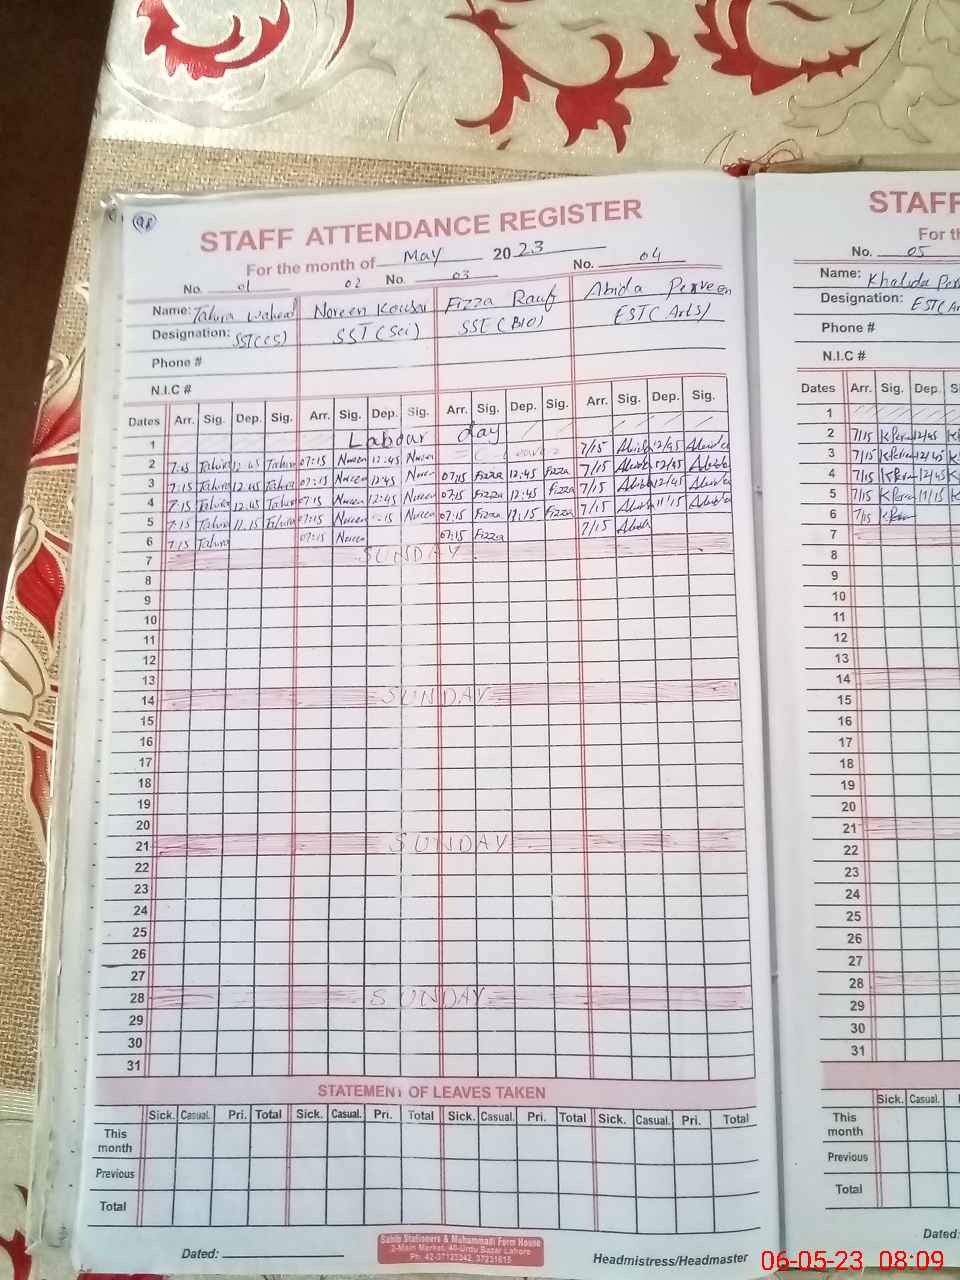 98
STAFF ATTENDANCE REGISTER
For the month of May 2023
No. 01 02 No. 03 No. 04
Name: Tahira Waheed Noreen Kousar Fizza Rauf Abida Perveen
Designation: SST(CS) SST(Sci) SST(BIO) EST(Arts)
Phone #
N.I.C #
Dates Arr. Sig. Dep. Sig. Arr. Sig. Dep. Sig. Arr. Sig. Dep. Sig. Arr. Sig. Dep. Sig.
1 Labour day
2 7:15 Tahira 12:45 Tahira 07:15 Noreen 12:45 Noreen Leave 7/15 Abida 12/45 Abida
3 7:15 Tahira 12:45 Tahira 07:15 Noreen 12:45 Noreen 07:15 Fizza 12:45 Fizza 7/15 Abida 12/45 Abida
4 7:15 Tahira 12:45 Tahira 07:15 Noreen 12:45 Noreen 07:15 Fizza 12:45 Fizza 7/15 Abida 12/45 Abida
5 7:15 Tahira 11:15 Tahira 07:15 Noreen :15 Noreen 07:15 Fizza 11:15 Fizza 7/15 Abida 11/15 Abida
6 7:15 Tahira 07:15 Noreen 07:15 Fizza 7/15 Abida
7 SUNDAY
8
9
10
11
12
13
14 SUNDAY
15
16
17
18
19
20
21 SUNDAY
22
23
24
25
26
27
28 SUNDAY
29
30
31
STATEMENT OF LEAVES TAKEN
Sick. Casual. Pri. Total Sick. Casual. Pri. Total Sick. Casual. Pri. Total Sick. Casual. Pri. Total
This month
Previous
Total
Dated:
Sahib Stationers & Muhammadi Form House
2-Main Market, 40-Urdu Bazar Lahore
Headmistress/Headmaster
STAFF
For th
No. 05
Name: Khalida Per
Designation: EST(Ar
Phone #
N.I.C #
Dates Arr. Sig. Dep. S
1
2 7/15 K Perv 12/45 K
3 7/15 K Perv 12/45 K
4 7/15 K Perv 12/45 K
5 7/15 K Perv 11/15 K
6 7/15 K Perv
7
8
9
10
11
12
13
14
15
16
17
18
19
20
21
22
23
24
25
26
27
28
29
30
31
Sick. Casual.
This month
Previous
Total
Dated:
06-05-23 08:09